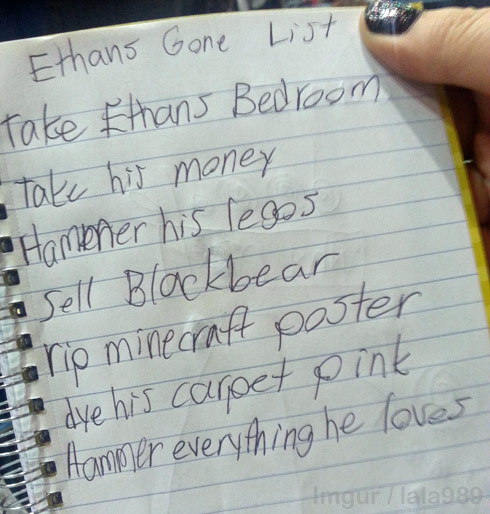 Ethans Gone List
Take Ethans Bedroom
Take his money
Hammer his legos
Sell Blackbear
rip minecraft poster
dye his carpet pink
Hammer everything he loves
Imgur / lala989